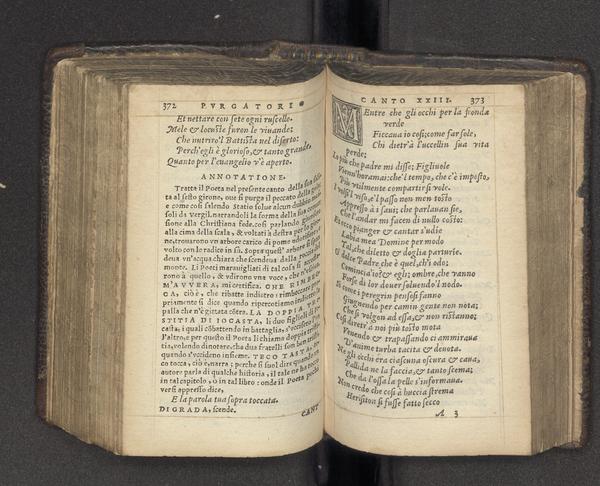 372 PVRGATORIO
Et nettare con sete ogni ruscello.
Mele & locuste furon le viuande;
Che nutriro'l Battista nel diserto:
Perch'egli è glorioso, & tanto grande,
Quanto per l'euangelio v'è aperto.
ANNOTATIONE.
Tratta il Poeta nel presente canto della
ta al sesto girone, oue si purga il peccato della
e come così salendo Statio solue alcun dubbio
soli da Vergil. narrandoli la forma della sua
sione alla Christiana fede. così parlando
alla cima della scala, & voltati à destra per lo
ne, trouarono vn arbore carico di pome odorifere
volto con le radice in sù. Sopra quest'arbore si
deua vn'acqua chiara che scendeua dalla
monte. Li Poeti marauigliati di tal cosa si
rono à quello, & vdirono vna voce, che
M'AVVERA, mi certifica. CHE RIMBEC
CA, cioè, che ribatte indietro: rimbeccare
priamente si dice quando ripercotiamo indietro
palla che n'è gittata cōtra. LA DOPPIA TRI-
STITIA DI IOCASTA, li duo figliuoli di
casta; i quali cōbattendo in battaglia, s'vccisero
l'altro, e per questo il Poeta li chiama doppia
tia, volendo dinotare, cha dua fratelli son
quando s'vccideno insieme. TECO TASTA,
co tocca, cioè, narra: perche si suol dire quando
autore parla di qualche historia, il tale ne ha
in tal capitolo, ò in tal libro: onde il Poeta
versi appresso dice,
E la parola tua sopra toccata.
DI GRADA, scende.
CANT
CANTO XXIII. 373
MEntre che gli occhi per la fronda
verde
Ficcaua io così; come far sole,
Chi dietr'à l'uccellin sua vita
perde;
Lo più che padre mi disse; Figliuole
Vienn'horamai: che'l tempo, che c'è imposto,
Più vtilmente compartir si vole.
I volsi'l viso, e'l passo non men tosto
Appresso à i saui; che parlauan sie,
Che l'andar mi facen di nullo costo:
Et ecco pianger & cantar s'udie
Labia mea Domine per modo
Tal, che diletto & doglia parturie.
O dolce Padre che è quel, ch'i odo;
Comincia'io? & egli; ombre, che vanno
Forse di lor douer soluendo'l nodo.
Sì come i peregrin pensosi fanno
Giugnendo per camin gente non nota;
Che si volgon ad essa, & non ristanno;
Così dietr'à noi più tosto mota
Venendo & trapassando ci ammiraua
D'anime turba tacita & deuota.
Ne gli occhi era ciascuna oscura & caua,
Pallida ne la faccia, & tanto scema;
Che da l'ossa la pelle s'informaua.
Non credo che così à buccia strema
Herisiton si fusse fatto secco
A 3